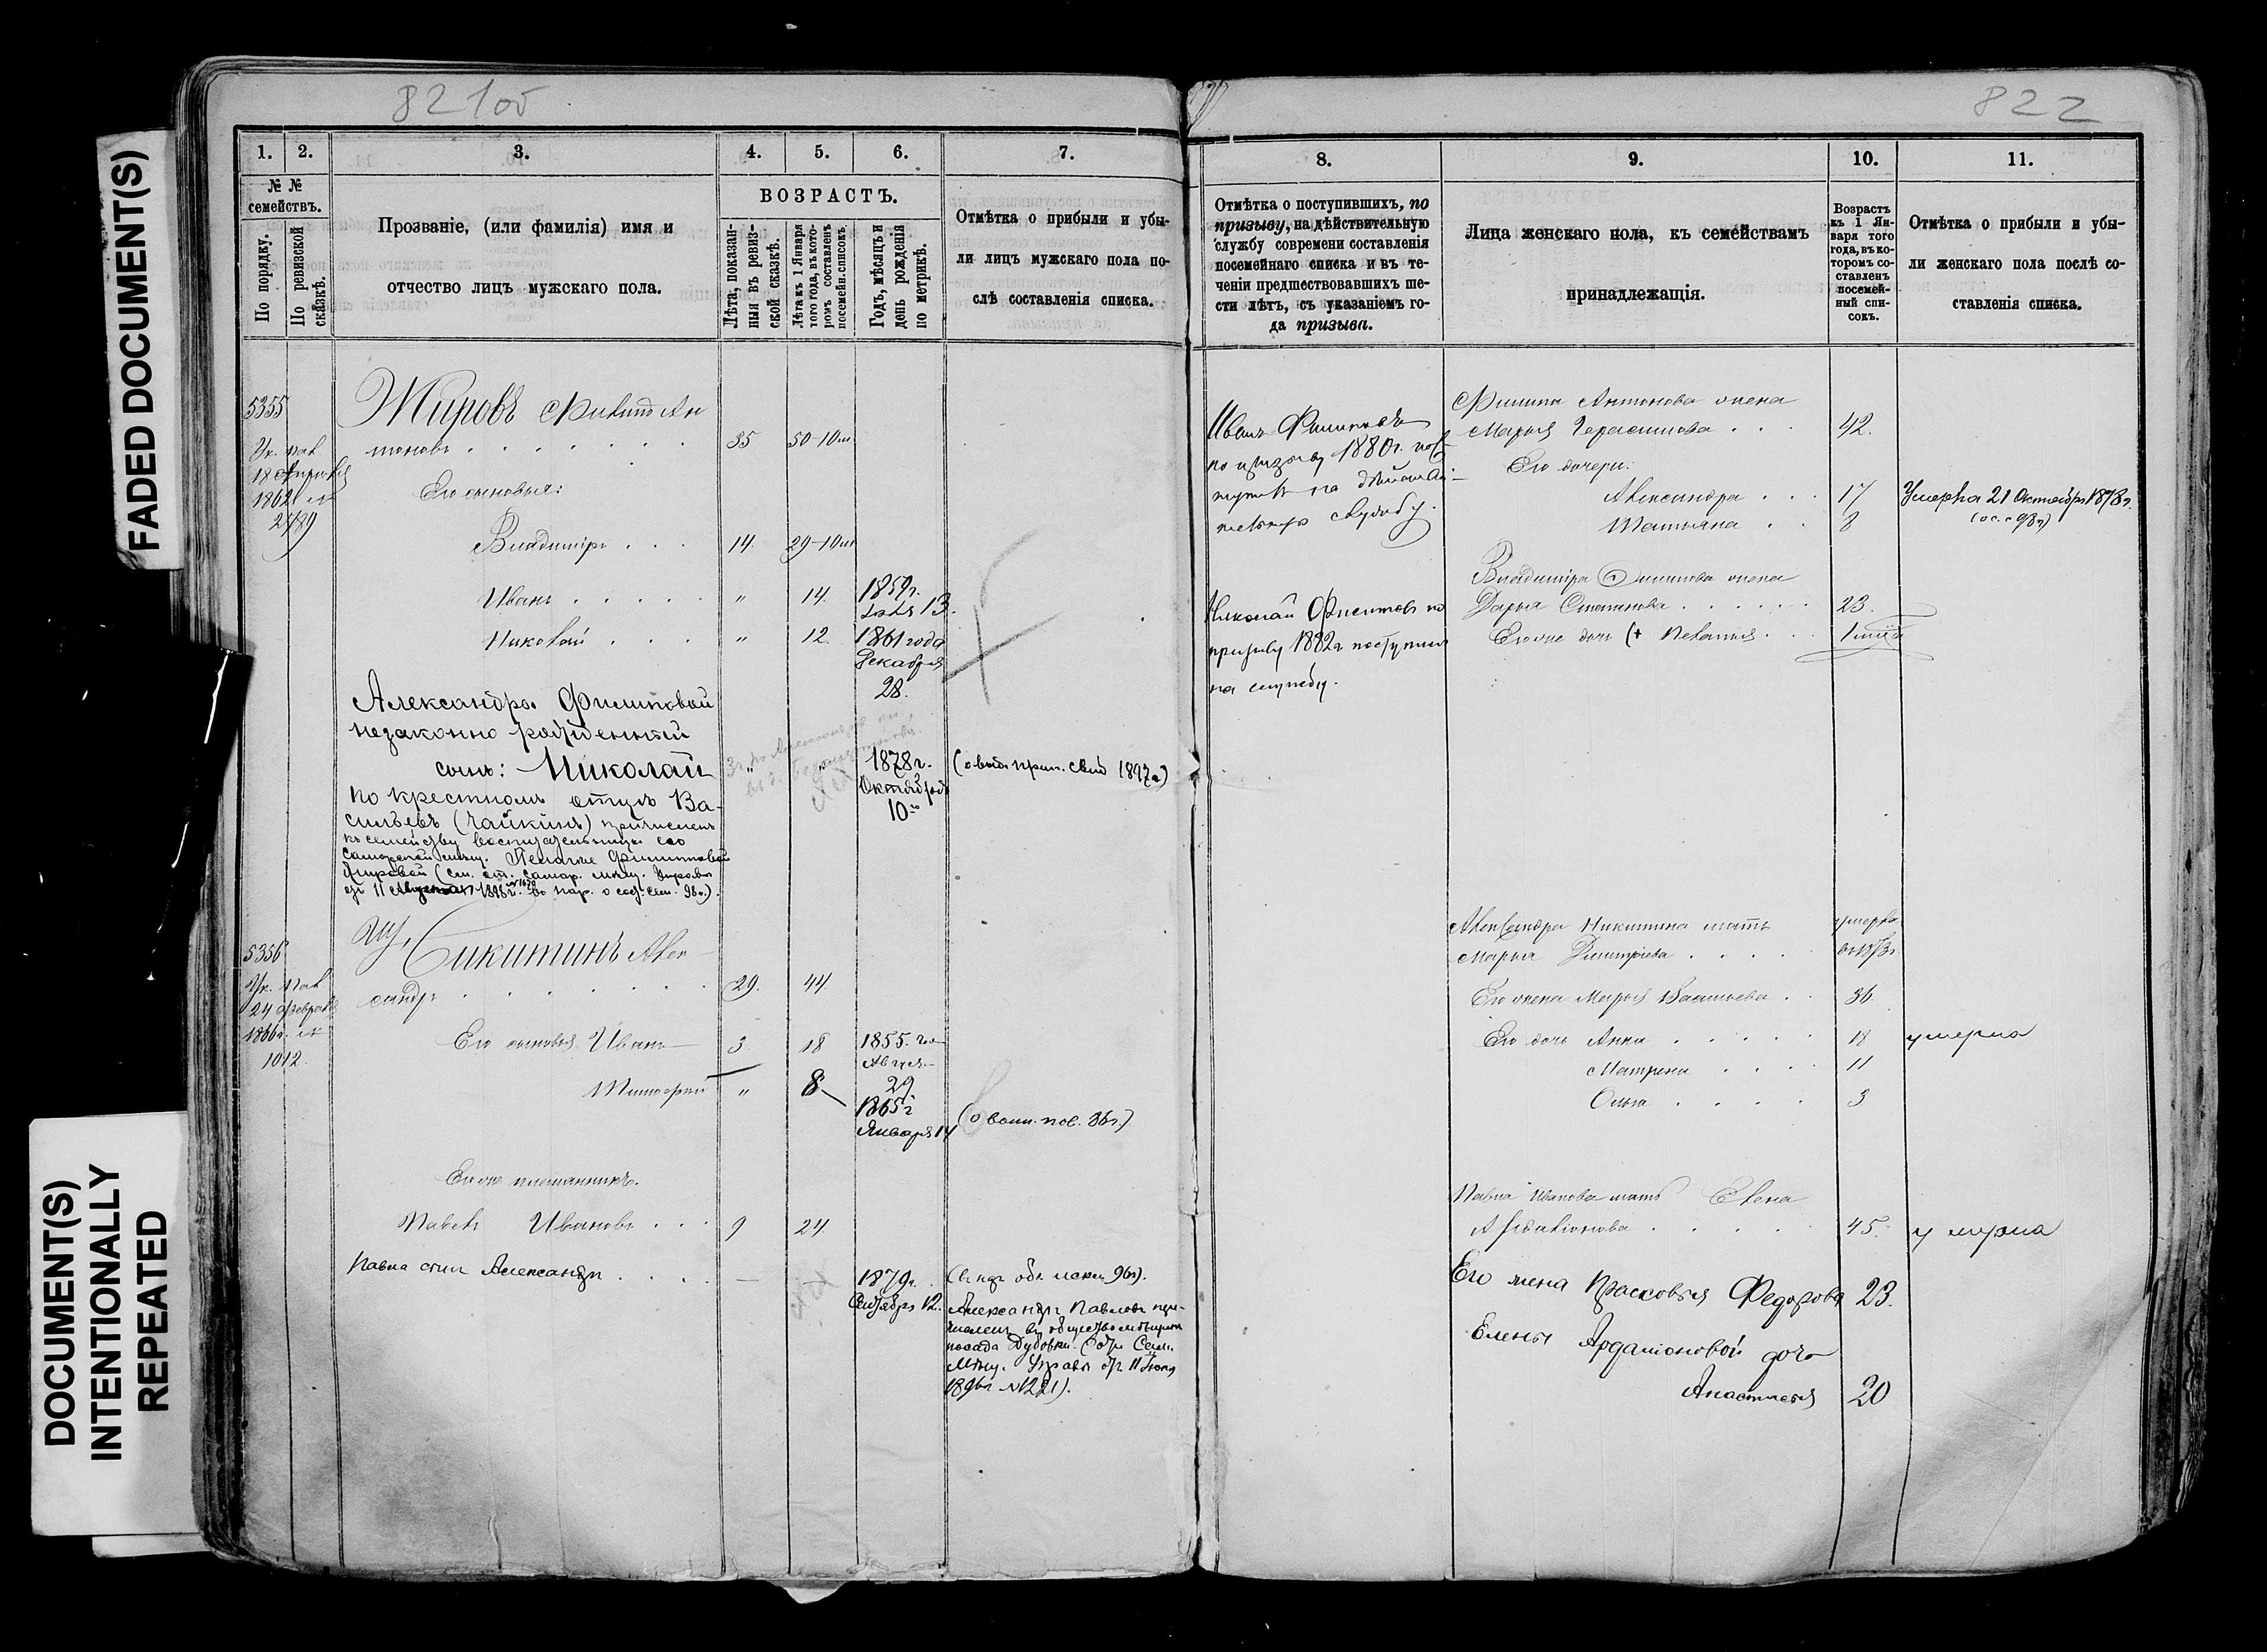 FADED DOCUMENT(S)
DOCUMENT(S)
INTENTIONALLY
REPEATED
821об
1. 2. 3. 4. 5. 6. 7.
№ №
семействъ.
По порядку.
По ревизской
сказкѣ.
Прозваніе, (или фамилія) имя и
отчество лицъ мужскаго пола.
ВОЗРАСТЪ.
Лѣта, показан-
ныя въ ревиз-
ской сказкѣ.
Лѣта къ 1 Января
того года, въ кото-
ромъ составленъ
посемейн. списокъ.
Годъ, мѣсяцъ и
день рожденія
по метрикѣ.
Отмѣтка о прибыли и убы-
ли лицъ мужскаго пола по-
слѣ составленія списка.
5355
Ук. пал
18 Апрѣля
1862 г. №
2489
Жировъ Филипъ Ан
тоновъ 35 50-10м
Его сыновья:
Владиміръ 14. 29-10м
Иванъ " 14. 1859г.
13.
Николай " 12. 1861 года
Декабря
28.
Александры Филиповой
незаконно рожденный
сынъ: Николай " " 1878г.
Октября
10го
(о выд. прип. свид 1897г)
по крестномъ отцѣ Ва-
сильевъ (Чайкинъ) причисленъ
къ семейству воспитательницы его
Пелагеи Филипповой
Жировой
5356
Ук. пал
24 Февраля
1866г. №
1012.
Сикитинъ Алек
сандръ 29. 44
Его сыновья Иванъ 3 18 1855. года
Августа
29
Тимофей " 8 1865г
Января 14
(о воин. пов. 86г.)
Его же племянникъ.
Павелъ Ивановъ 9 24
Павла сынъ Александръ — 1879г.
Сентября 12.
Александръ Павловъ пери-
численъ въ общество мѣщанъ
посада Дубовки.
Мѣщ. Управы от 11 Іюня
1896г №1221).
822
8. 9. 10. 11.
Отмѣтка о поступившихъ, по
призыву, на дѣйствительную
службу современи составленія
посемейнаго списка и въ те-
ченіи предшествовавшихъ ше-
сти лѣтъ, съ указаніемъ го-
да призыва.
Лица женскаго пола, къ семействамъ
принадлежащія.
Возрастъ
къ 1 Ян-
варя того
года, въ ко-
торомъ со-
ставленъ
посемей-
ный спи-
сокъ.
Отмѣтка о прибыли и убы-
ли женскаго пола послѣ со-
ставленія списка.
Иванъ Филиповъ
по призыву 1880г. пос
тупилъ на дѣйстви
тельную службу.
Филипа Антонова жена
Марья Герасимова 42.
Его дочери:
Александра 17 Умерла 21 Октября 1878г.
Татьяна 8
Николай Филиповъ по
призыву 1882г поступилъ
на службу.
Владиміра Филипова жена
Дарья Степанова 23.
Его же дочь Пелагея 1 мѣс
Александра Никитина мать умерла
Марья Димитріева
Его жена Марья Васильева 36
Его дочь Анна 18 умерла
Матрена 11
Ольга 3
Павла Иванова мать Елена
Ардаліонова 45. умерла
Его жена Прасковья Федорова 23.
Елены Ардаліоновой дочь
Анастасія 20